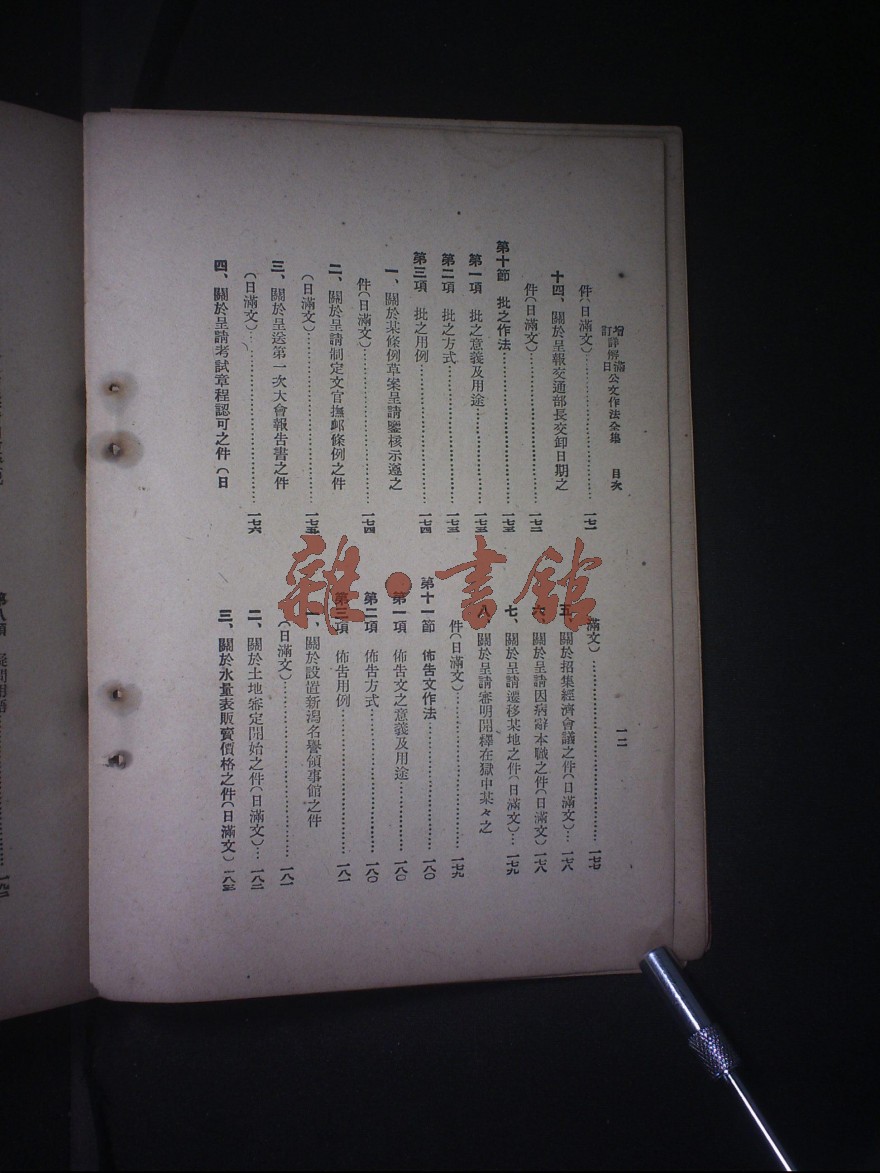 增訂詳解日滿公文作法全集 目次
一二
件(日滿文)……一七一
十四、關於呈報交通部長交卸日期之
件(日滿文)……一七二
第十節 批之作法……一七三
第一項 批之意義及用途……一七三
第二項 批之方式……一七三
第三項 批之用例……一七四
一、關於某條例草案呈請鑒核示遵之
件(日滿文)……一七四
二、關於呈請制定文官撫卹條例之件
(日滿文)……一七五
三、關於呈送第一次大會報告書之件
(日滿文)……一七六
四、關於呈請考試章程認可之件(日
滿文)……一七七
五、關於招集經濟會議之件(日滿文)…一七八
六、關於呈請因病辭本職之件(日滿文)一七八
七、關於呈請遷移某地之件(日滿文)…一七九
八、關於呈請審明開釋在獄中某々之
件(日滿文)……一七九
第十一節 佈告文作法……一八〇
第一項 佈告文之意義及用途……一八〇
第二項 佈告方式……一八〇
第三項 佈告用例……一八一
一、關於設置新潟名譽領事館之件
(日滿文)……一八一
二、關於土地審定開始之件(日滿文)…一八二
三、關於水量表販賣價格之件(日滿文)一八五
第八項 疑問用語
雜·書館